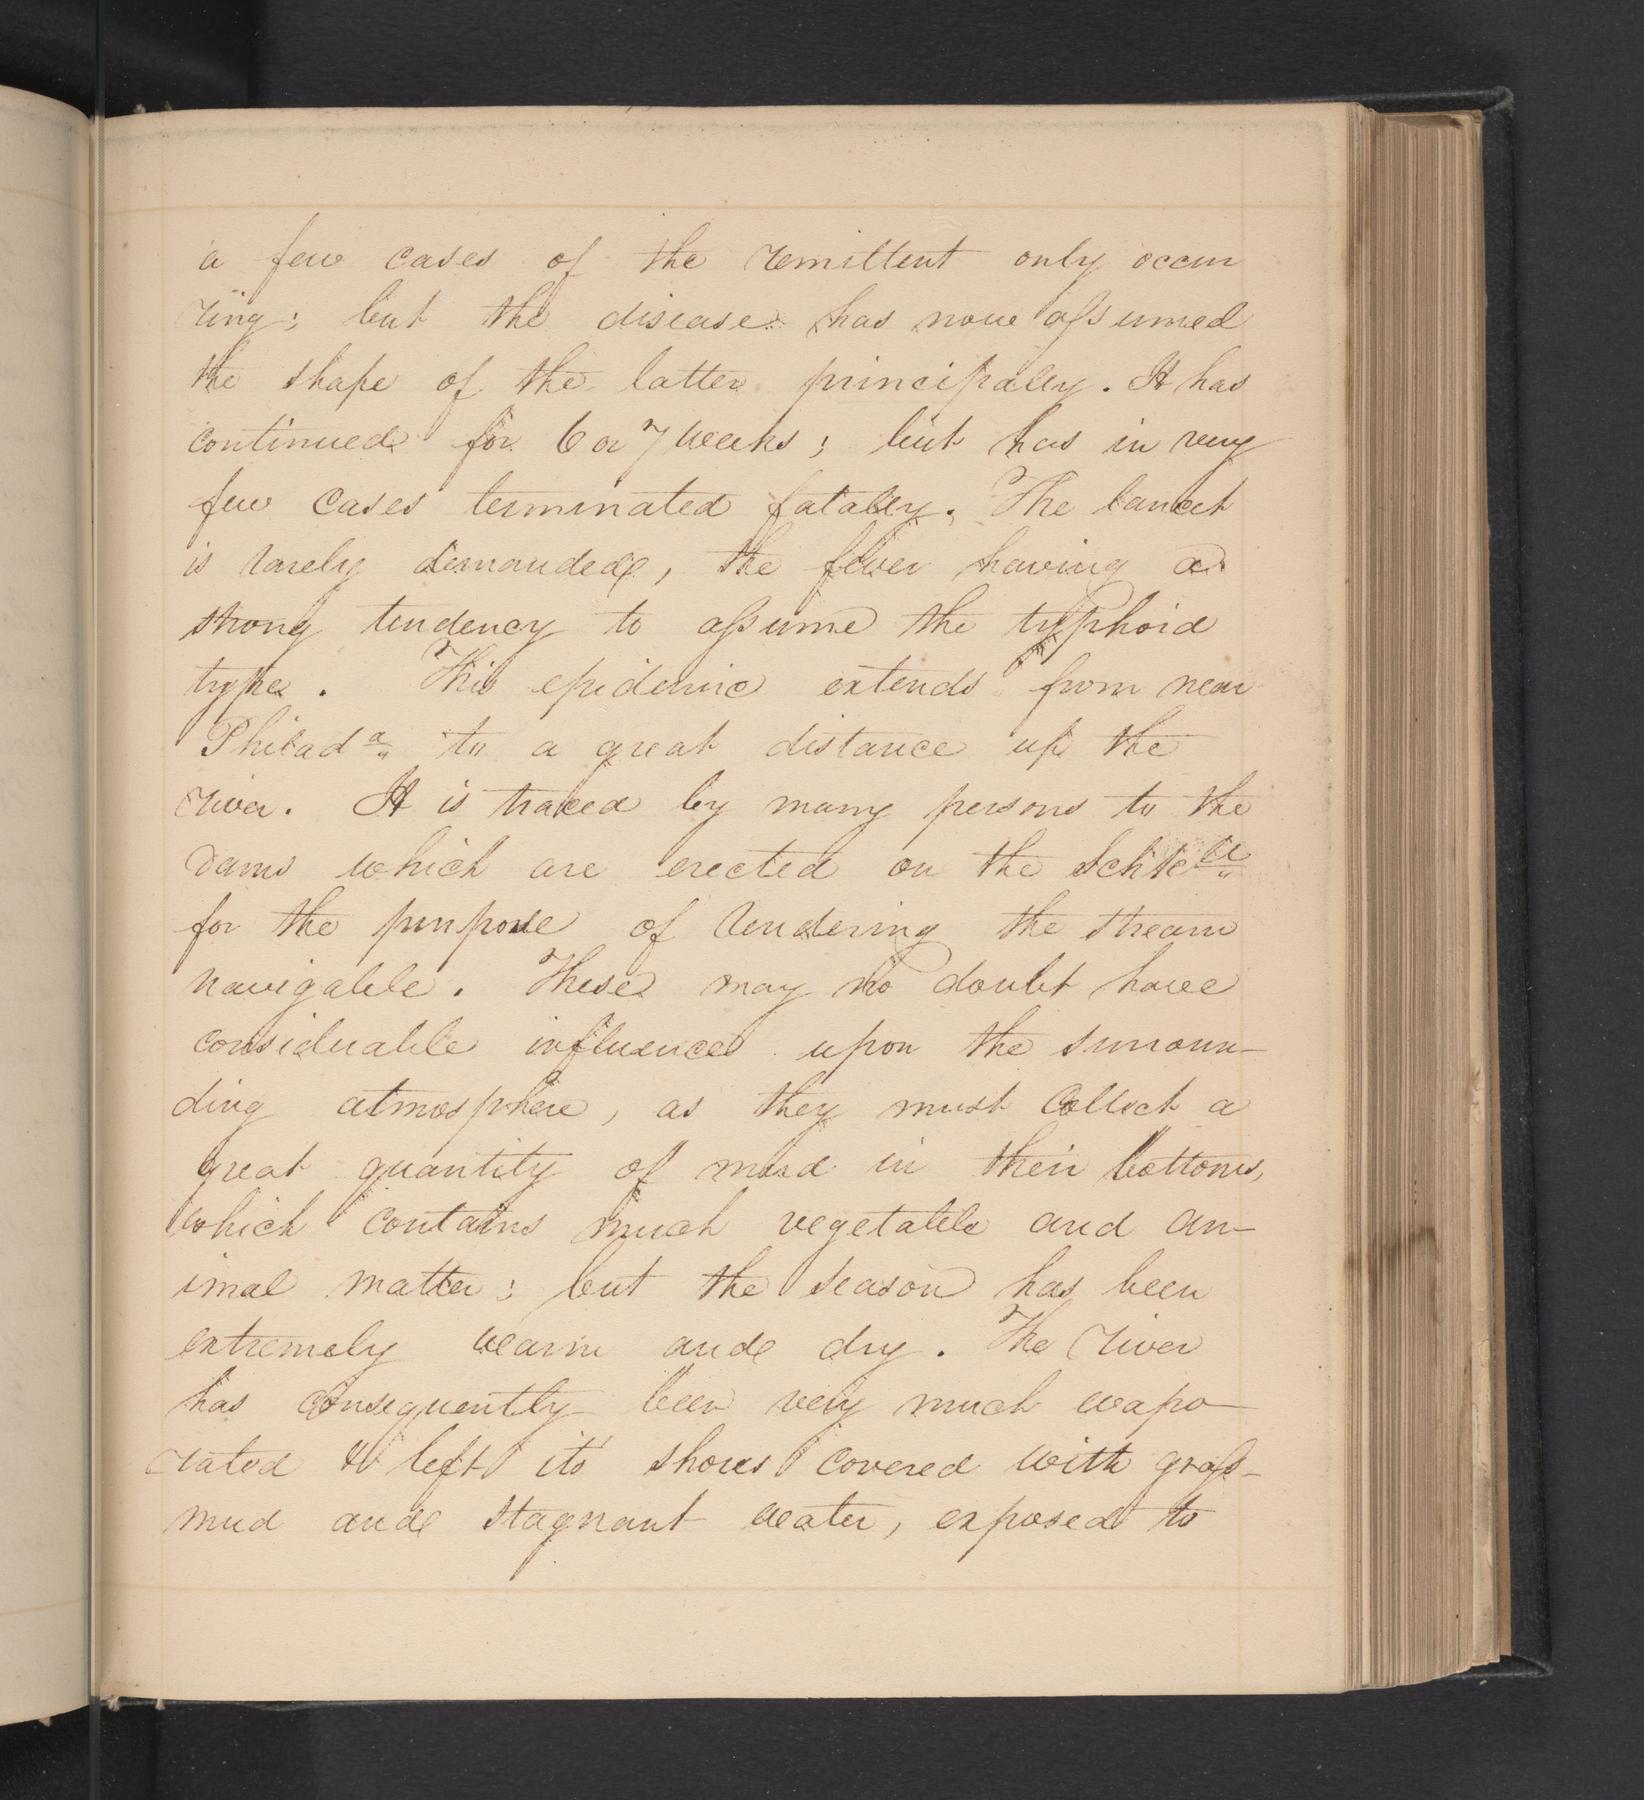 a few cases of the remittent only occur
ring; but the disease has now assumed
the shape of the latter principally. It has
continued for 6 or 7 weeks; but has in very
few cases terminated fatally. The lancet
is rarely demanded, the fever having a
strong tendency to assume the typhoid
type. This epidemic extends from near
Philada. to a great distance up the
river. It is traced by many persons to the
dams which are erected on the Schkll
for the purpose of rendering the stream
navigable. These may no doubt have
considerable influences upon the surroun-
ding atmosphere, as they must collect a
great quantity of mud in their bottoms,
which contains much vegetable and an-
imal matter; but the season has been
extremely warm and dry. The river
has consequently been very much evapo-
rated & left its shores covered with grass-
mud and stagnant water, exposed to